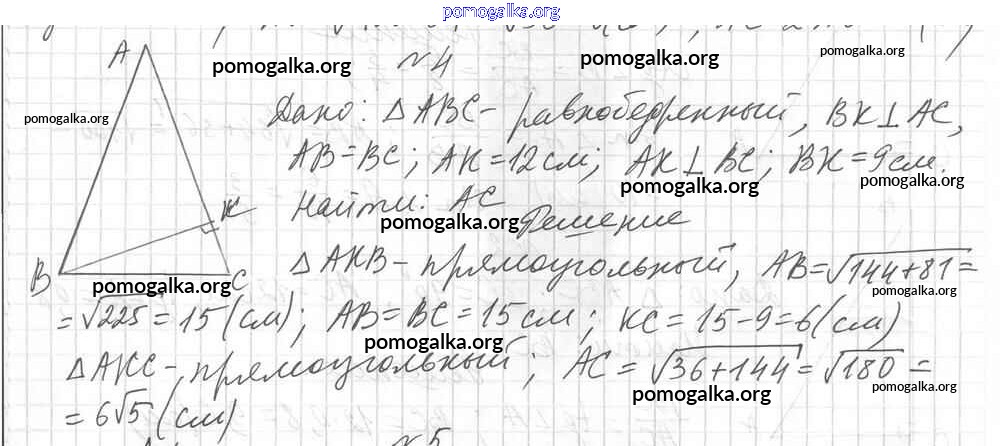 pomogalka.org
pomogalka.org № 4 pomogalka.org pomogalka.org
A
pomogalka.org
Дано: △ ABC - равнобедренный, BK ⊥ AC,
AB = BC; AK = 12 см; AK ⊥ BC; BK = 9 см.
pomogalka.org pomogalka.org
Найти: AC
K pomogalka.org Решение
B C
△ AKB - прямоугольный, AB = √144+81 =
pomogalka.org pomogalka.org
= √225 = 15 (см); AB = BC = 15 см; KC = 15 - 9 = 6 (см)
pomogalka.org
△ AKC - прямоугольный; AC = √36+144 = √180 =
pomogalka.org pomogalka.org
= 6√5 (см)
№ 5